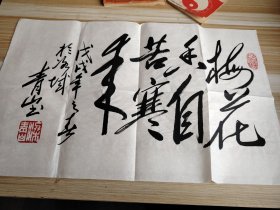 梅花
香自
苦寒
来
戊戌年之春
于洛城
青山